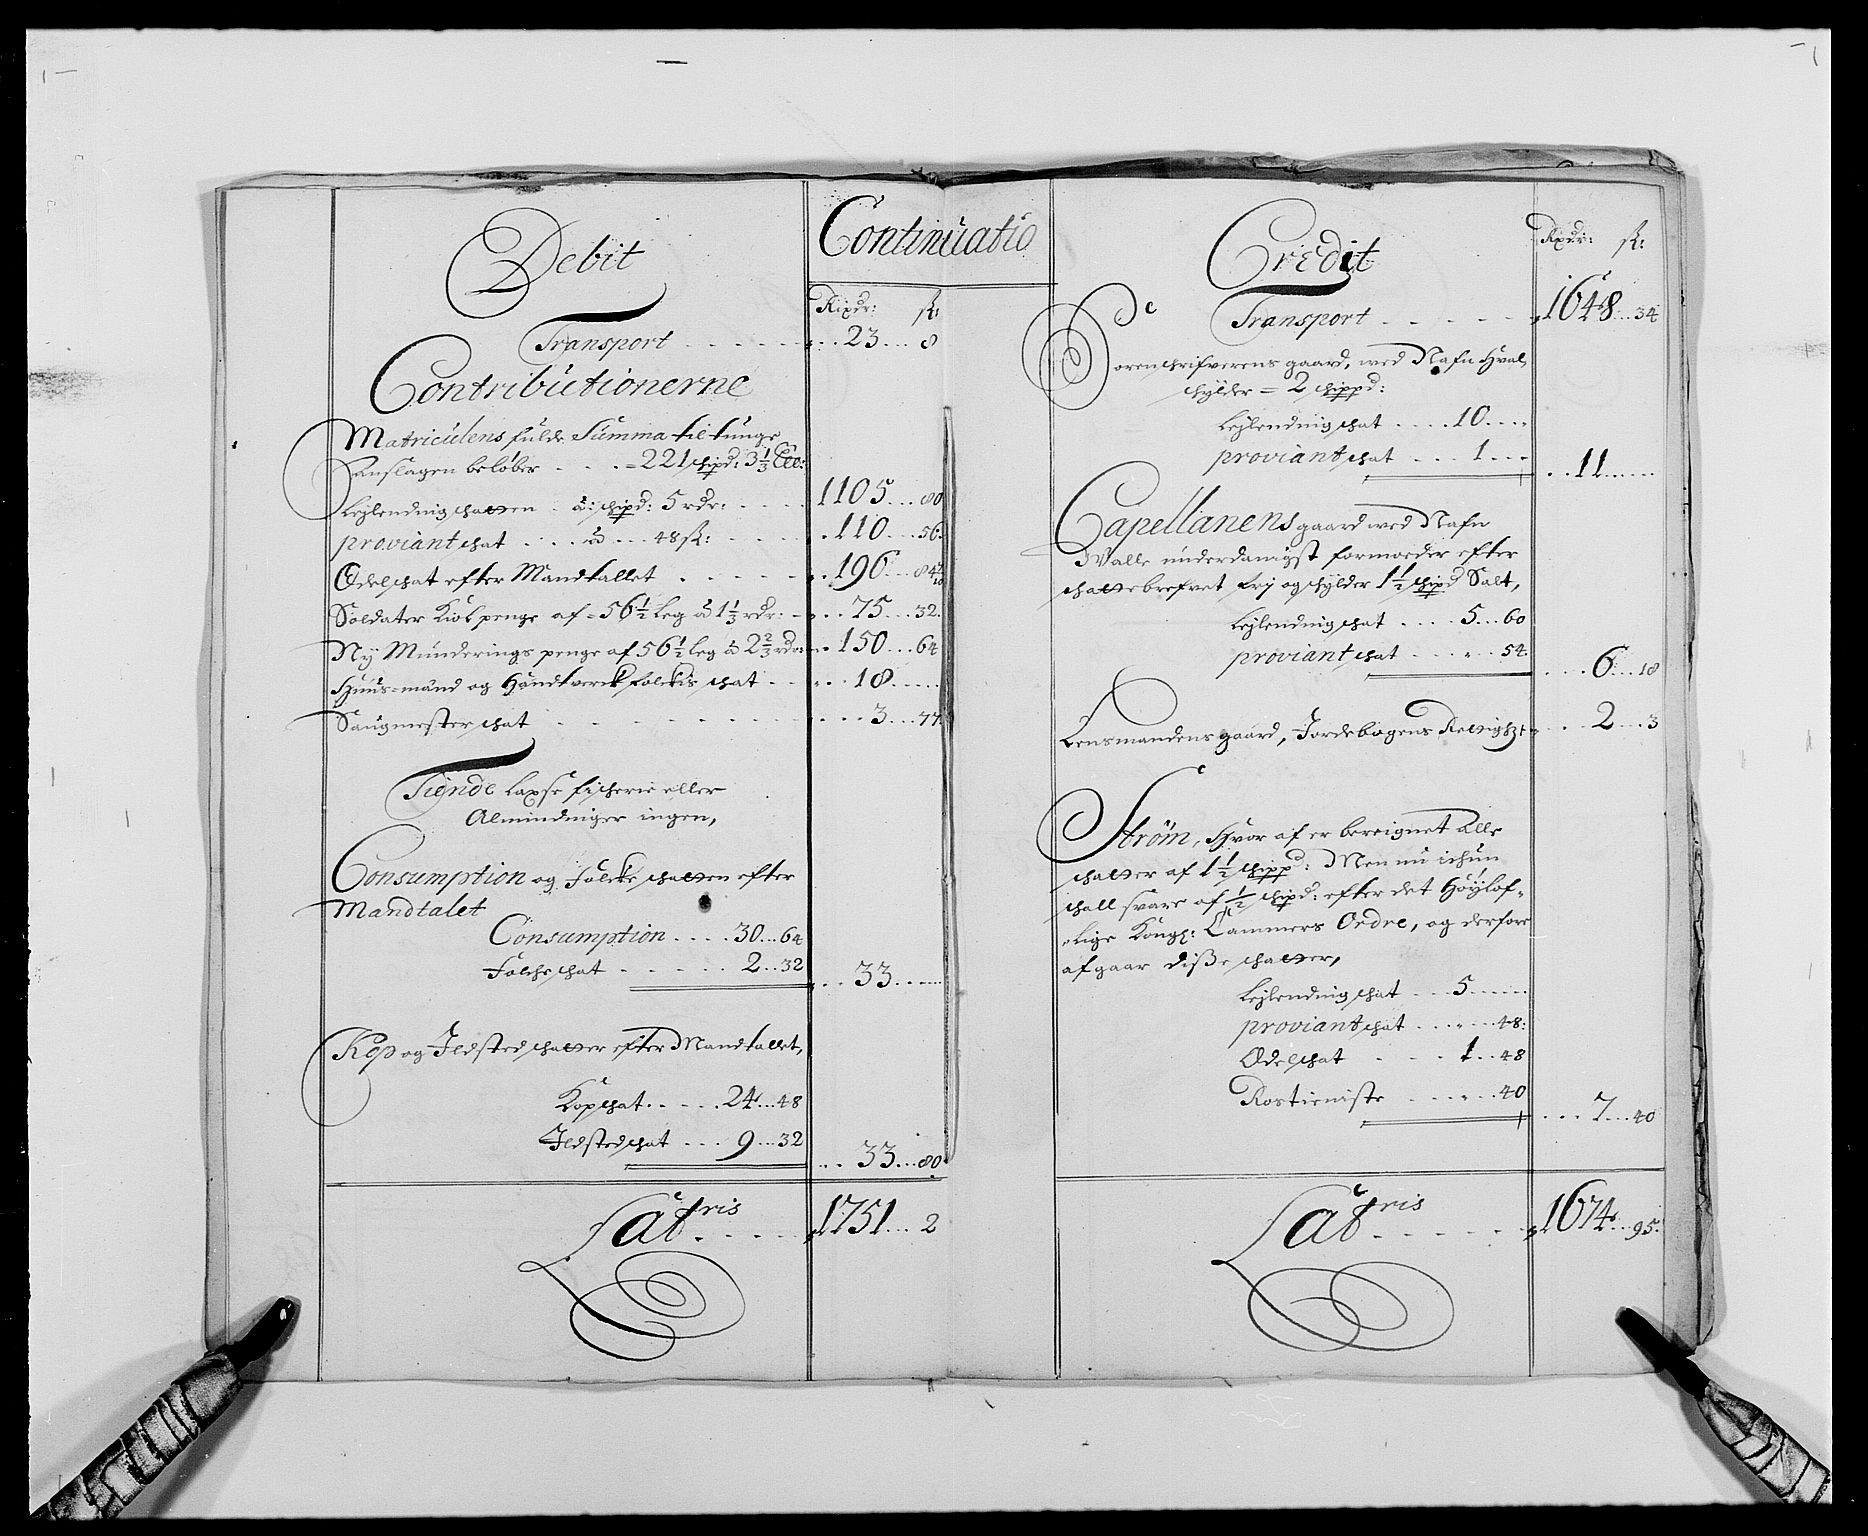 Continuatio
Debit
Rixdr: sk:
Transport . . . . . 23 . . . 8
Contributionerne
Matriculens fulde Summa til tunge
anslagen beløber . . . = 221 schipd: 3 1/3
Leylending schatten . â: schipd: 5 rdr: . . . 1105 . . . 80
proviant schat . . . â . . . 48 sk: . . . 110 . . . 56
Odelschat efter Mandtallet . . . 196 . . . 84
Soldater Kiol penge af = 56 1/2 leg â 1 1/3 rdr: . . 75 . . . 32
Ny Munderings penge af 56 1/2 leg â 2 2/3 rdr . . 150 . . . 64
Huus-mænd og Handtverck folckis schat . . . 18 . . .
Saugmester schat . . . 3 . . . 77
Tiende Laxse fischerie eller
Almindniger ingen,
Consumption og Folcke schatten efter
Mandtalet
Consumption . . . . 30 . . . 64
Folcke schat . . . . . 2 . . 32
. . 33 . . .
Kop og Ildsted schatter efter Mandtallet,
Kopschat . . . . . 24 . . . 48
Ildsted schat . . . 9 . . . 32
. . 33 . . . 80
Latris . . . . . 1751 . . . 2
Credit
Rixdr: sk:
Transport . . . . . 1648 . . . 34
Sorenschrifverens gaard, wed Nafn Hval,
schylder = 2 schippd:
Leylending schat . . . . 10 . . .
proviant schat . . . 1 . . .
. . 11 . . .
Capellanens gaard wed Nafn
Walle underdanigst formoeder efter
schattebrefvet fri og schylder 1 1/2 schipd Salt,
Leylending schat . . . . 5 . . . 60
proviant schat . . . „ . . 54
. . . 6 . . . 18
Lensmandens gaard, Jordebogens . . . 2 . . . 3
Strøm, Hvor af er beregnet alle
schatter af 1 1/2 schippd: Men nu ichun
schall svare af 1/2 schipd: efter det Høylof-
lige Kongl: Cammers Ordre, og derfore
afgaar disse schatter,
Leylending schat . . . 5 . . .
proviant schat . . . „ . . . 48:
Odelschat . . . . 1 . . 48
Rostieniste . . . „ . . 40
. . . 7 . . . 40
Latris . . . . . 1674 . . . 95